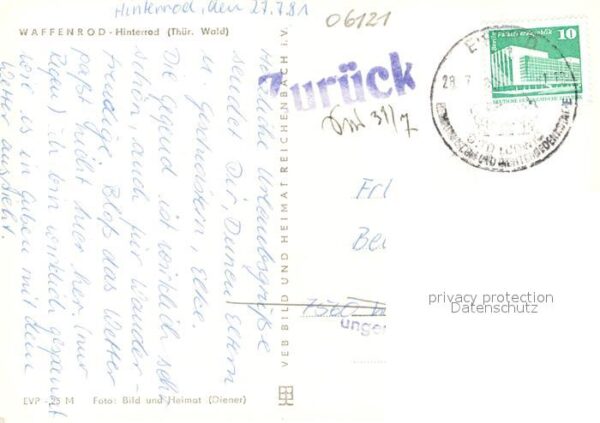 Hinterrod, den 27.7.81
06121
WAFFENROD - Hinterrod (Thür. Wald)
Herzliche Urlaubsgrüße
sendet Dir, Deinen Eltern
u. Geschwistern, Elke.
Die Gegend ist wirklich sehr
schön, auch für Wander-
freudige. Bloß das Wetter
paßt nicht hier her. (nur
Regen) Ich bin wirklich gespannt
wie es in Guben mit dem
Wetter aussieht.
Zurück
31/7
10
DEUTSCHE
28. 7.
7560
VEB BILD UND HEIMAT REICHENBACH i. V.
privacy protection
Datenschutz
EVP
M Foto: Bild und Heimat (Diener)